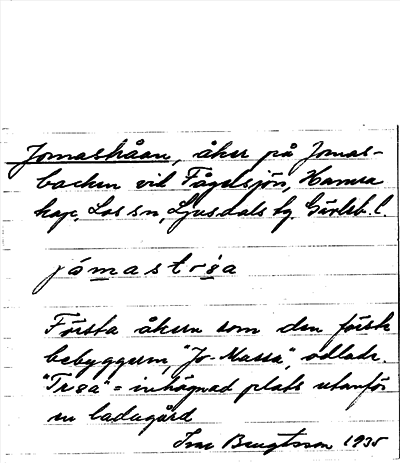 Jomasthåan, åker på Jomas-
backen vid Fågelsjön, Hamra
kap, Los sn, Ljusdals tg. Gävleb. l.
jómastrɛa
Första åkern som den förste
bebyggaren, "Jo-Massa", odlade.
"Trɛa" = inhägnad plats utanför
en ladugård
Ivar Bengtsson 1935